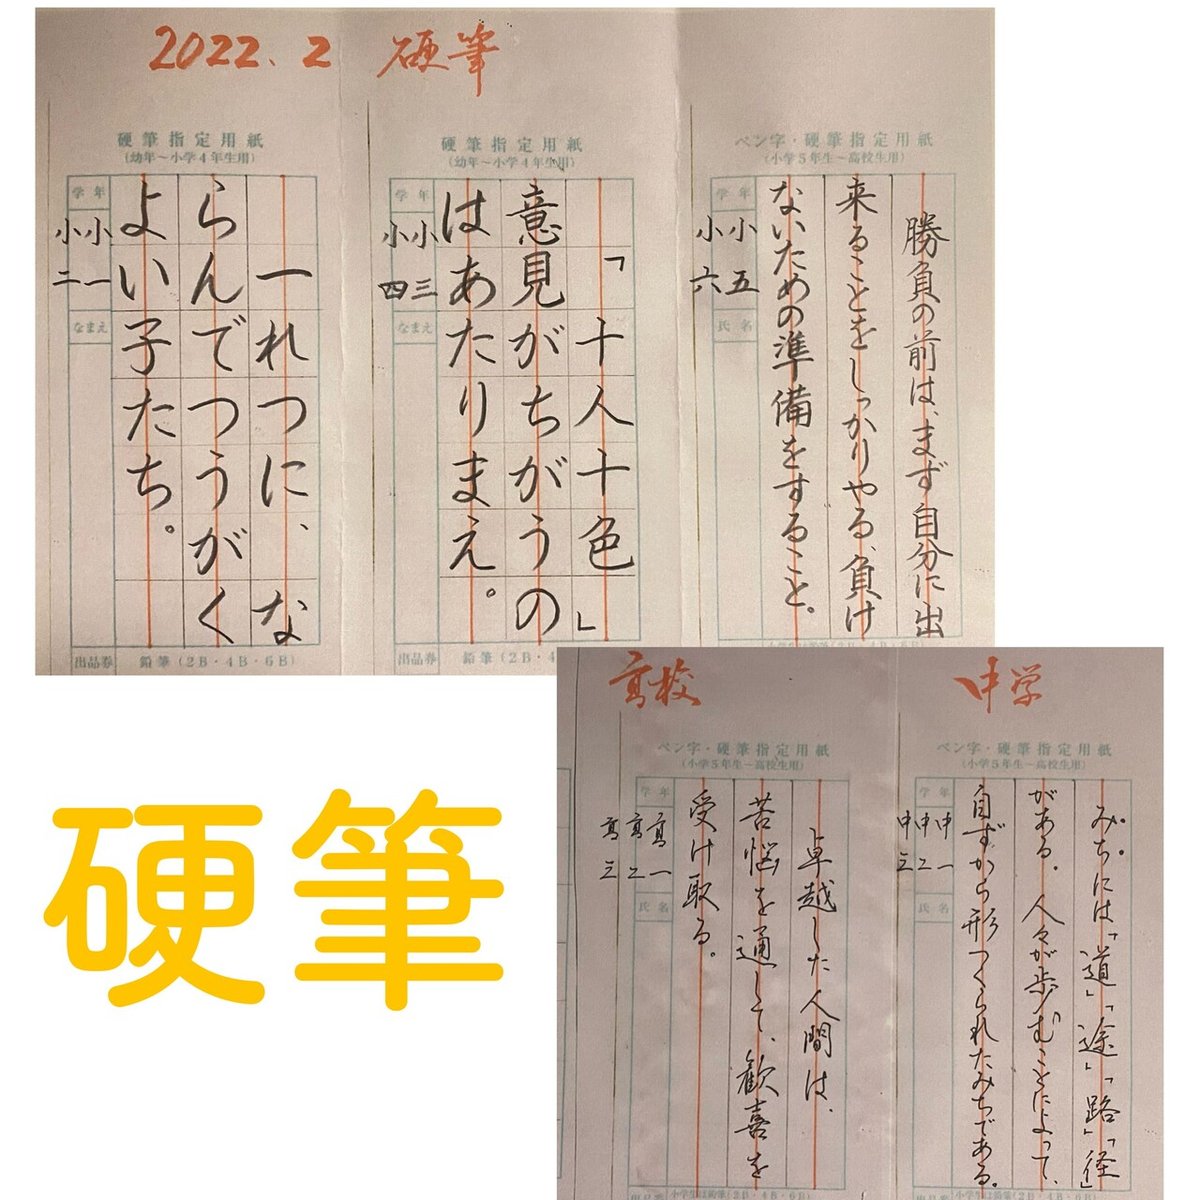 2022.2 硬筆
ペン字・硬筆指定用紙
(小学5年生~高校生用)
勝負の前は、まず自分に出
来ることをしっかりやる、負け
ないための準備をすること。
学年
小五
小六
氏名
硬筆指定用紙
(幼年~小学4年生用)
「十人十色」
意見がちがうの
はあたりまえ。
学年
小三
小四
なまえ
出品券
鉛筆(2B・4
硬筆指定用紙
(幼年~小学4年生用)
一れつに、な
らんでつうがく
よい子たち。
学年
小一
小二
なまえ
出品券
鉛筆(2B・4B・6B)
硬筆
中学
ペン字・硬筆指定用紙
(小学5年生~高校生用)
みち。には「道」「途」「路」「径」
がある。人々が歩むことによって、
自ずから形つくられたみちである。
学年
中一
中二
中三
氏名
高校
ペン字・硬筆指定用紙
(小学5年生~高校生用)
卓越した人間は、
苦悩を通して、歓喜を
受け取る。
学年
高一
高二
高三
氏名
小学生は鉛筆(2B・4B・6B)